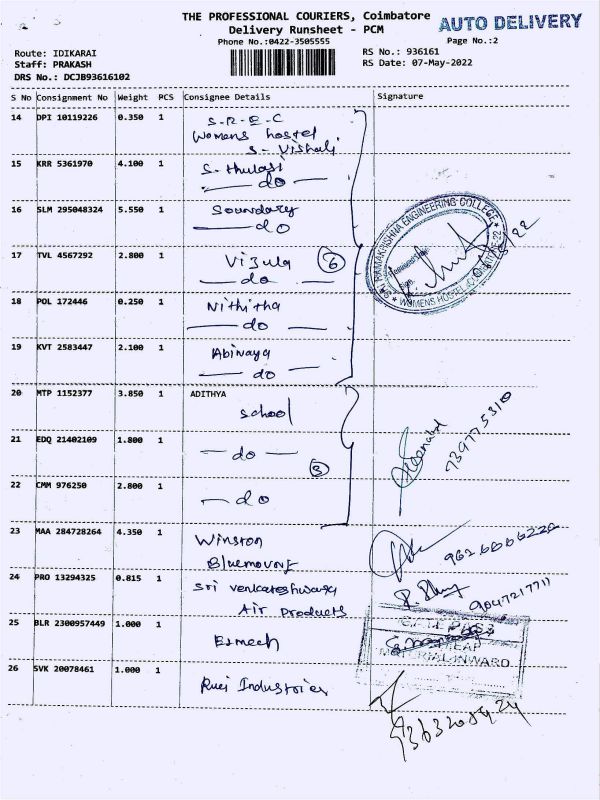 THE PROFESSIONAL COURIERS, Coimbatore
AUTO DELIVERY
Delivery Runsheet - PCM
Phone No.:0422-3505555
Page No.:2
Route: IDIKARAI
RS No.: 936161
Staff: PRAKASH
RS Date: 07-May-2022
DRS No.: DCJB93616102
S No Consignment No Weight PCS Consignee Details Signature
14 DPI 10119226 0.350 1 S.R.E.C
Womens hostel
S. Vishali
15 KRR 5361970 4.100 1 S. Thulasi
do
16 SLM 295048324 5.550 1 Soundary
do
17 TVL 4567292 2.800 1 Vizula 6
do
18 POL 172446 0.250 1 Nithitha
do
19 KVT 2583447 2.100 1 Abinaya
do
SRI RAMAKRISHNA ENGINEERING COLLEGE
WOMENS HOSTEL COIMBATORE-22
20 MTP 1152377 3.850 1 ADITHYA
school
21 EDQ 21402109 1.800 1 do
3
22 CMM 976250 2.800 1 do
23 MAA 284728264 4.350 1 Winston
24 PRO 13294325 0.815 1 Sri Venkateshwara
Air Products
9047217711
25 BLR 2300957449 1.000 1 Esmech
GATE PASS
MATERIAL INWARD
26 SVK 20078461 1.000 1 Industries